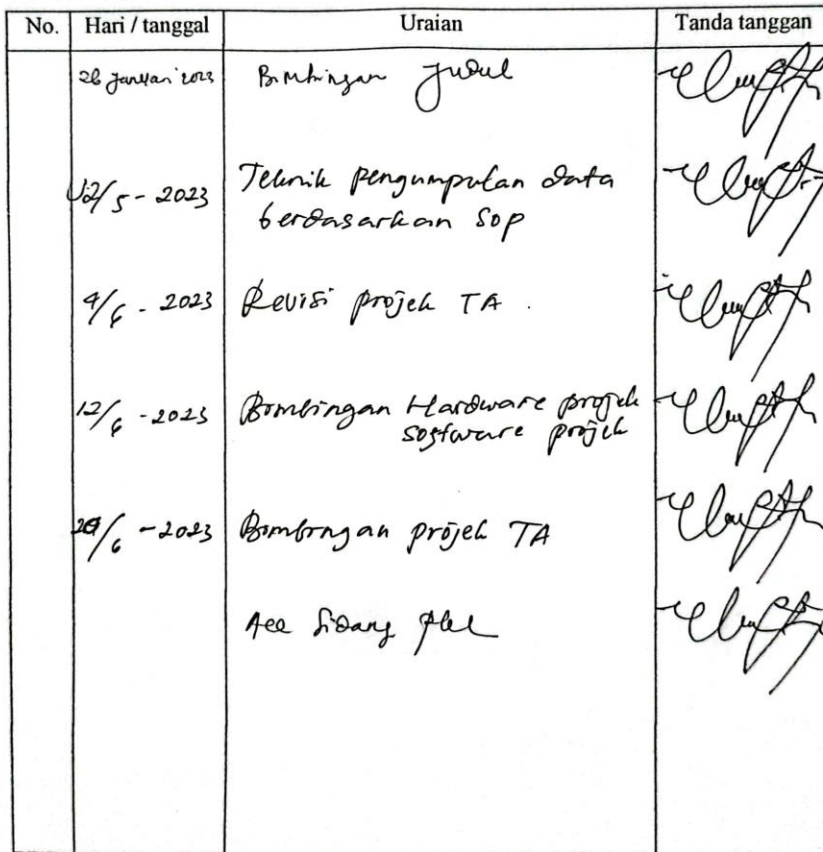 No. Hari / tanggal Uraian Tanda tanggan
26 Januari 2023 Bimbingan Judul
12/5 - 2023 Teknik pengumpulan data
berdasarkan SOP
9/6 - 2023 Revisi projek TA.
12/6 - 2023 Bimbingan Hardware projek
software projek
/6 - 2023 Bimbingan projek TA
Acc Sidang